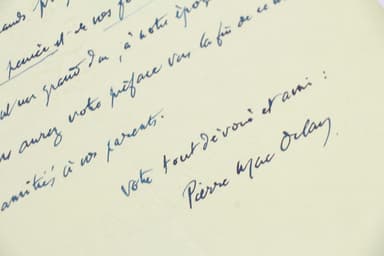 pensée et de vos
un grand don, à notre époque
aurez votre préface vers la fin de ce
amitiés à vos parents.
Votre tout dévoué et ami :
Pierre Mac Orlan